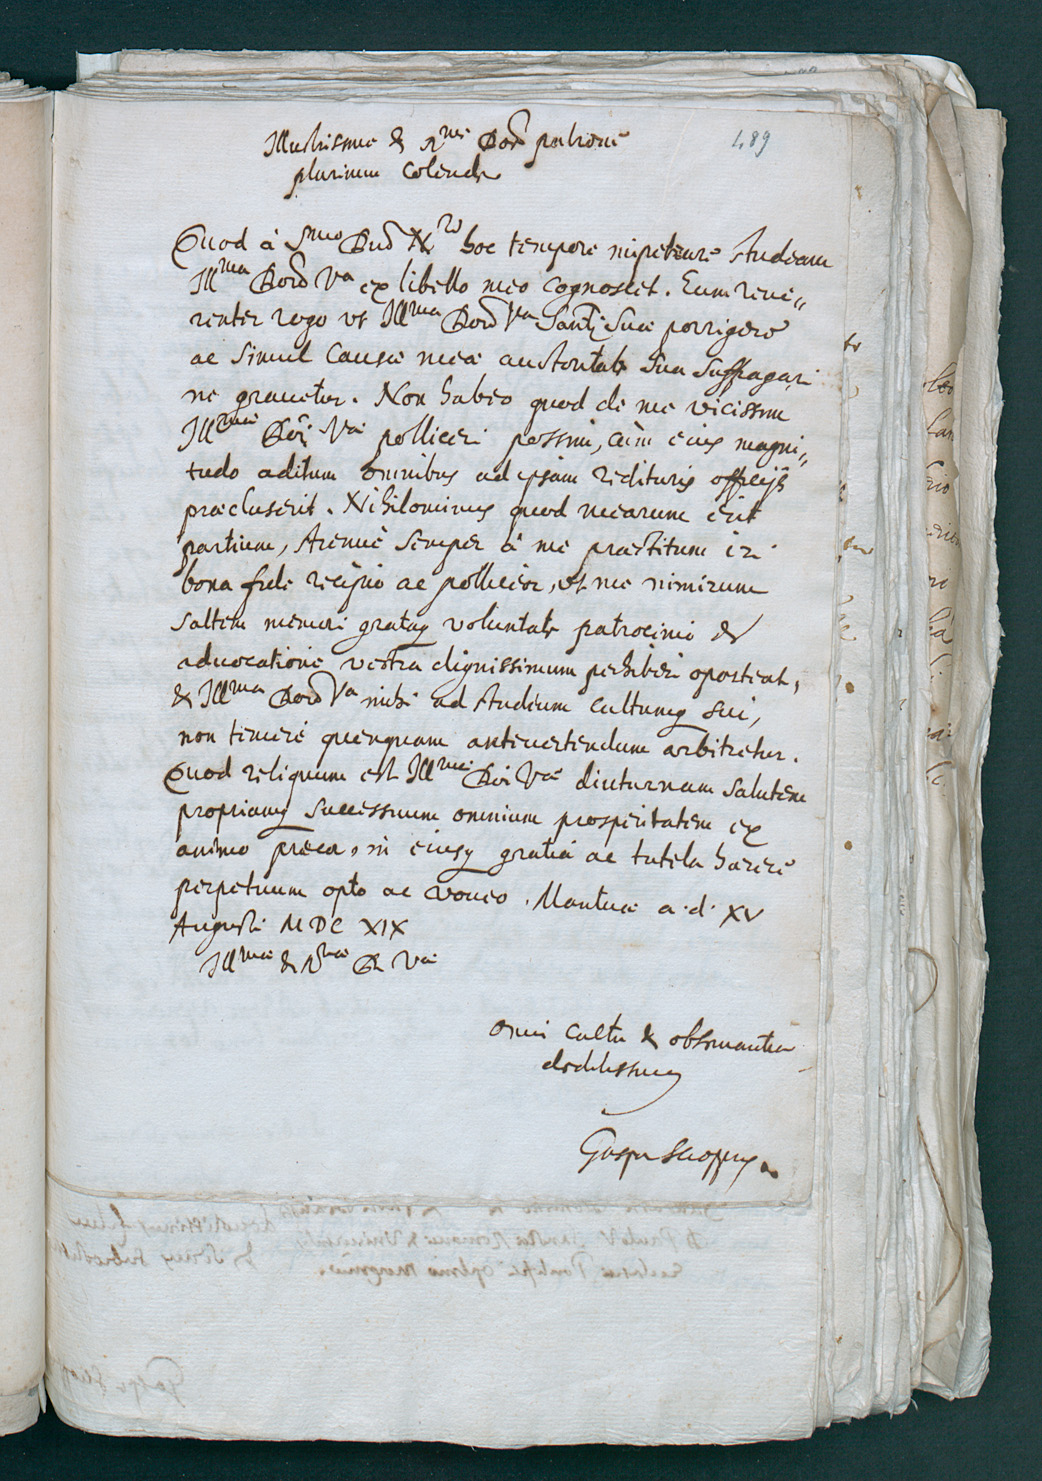 Illustrissime & R.me Dom̄ patrone
489
plurimum Colende
Quod à S.mo Dnō N.ro hoc tempore impetrare studeam
Ill.ma Domō V.a ex libello meo cognoscet. Eum reve„
renter rogo ut Ill.ma Domō V.a Sanct̄i Suæ porrigere
ac simul causæ meæ auctoritate sua suffragari
ne gravetur. Non habeo quod de me vicissim
Ill.mæ Dōi V.æ polliceri possim, cùm eius magni„
tudo aditum omnibus ad ipsam redituris officijs
præcluserit. Nihilominus quod mearum erit
partium, strenuè semper à me præstitum iri
bona fide recipio ac polliceor, ut me nimirum
saltem memori grataq voluntate patrocinio &
advocatione vestra dignissimum perhiberi oporteat,
& Ill.ma Domō V.a mihi ad studium cultumq sui,
non temerè quenquam antevertendum arbitretur.
Quod reliquum est Ill.mæ Dōi V.æ diuturnam salutem
propriamq successuum omnium prosperitatem ex
animo precor, in eiusq gratia ac tutela hærere
perpetuum opto ac voveo. Mantuæ a.d. XV
Augusti MDC XIX
Ill.mæ & R.mæ D. V.æ
Omni cultu & observantia
deditissimus
Gaspar Scioppius